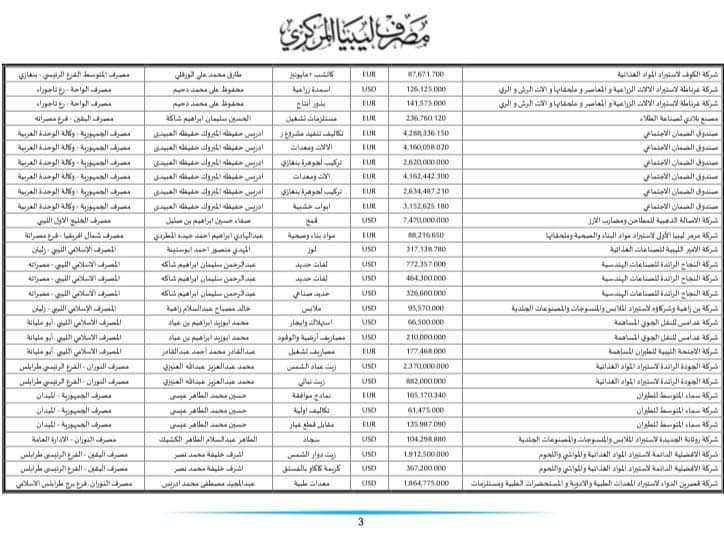 مصرف ليبيا المركزي
شركة الكوف لاستيراد المواد الغذائية 87,671.700 EUR كاتشب +مايونيز طارق محمد علي الورفلي مصرف المتوسط الفرع الرئيسي - بنغازي
شركة غرناطة لاستيراد الالات الزراعية و المعاصر و ملحقاتها و الات الرش و الري 126,125.000 USD اسمدة زراعية محفوظ علي محمد دهيم مصرف الواحة - رع تاجوراء
شركة غرناطة لاستيراد الالات الزراعية و المعاصر و ملحقاتها و الات الرش و الري 141,575.000 EUR بذور أنتاج محفوظ علي محمد دهيم مصرف الواحة - رع تاجوراء
مصنع بلادي لصناعة الطلاء 236,760.120 EUR مستلزمات تشغيل الحسين سليمان ابراهيم شاكة مصرف اليقين - فرع مصراته
صندوق الضمان الاجتماعي 4,288,336.150 EUR تكاليف تنفيذ مشروع ز ادريس حفيظه المبروك حفيظه العبيدى مصرف الجمهورية - وكالة الوحدة العربية
صندوق الضمان الاجتماعي 4,160,058.020 EUR الالات ومعدات ادريس حفيظه المبروك حفيظه العبيدى مصرف الجمهورية - وكالة الوحدة العربية
صندوق الضمان الاجتماعي 2,620,000.000 EUR تركيب لجوهرة بنغازي ادريس حفيظه المبروك حفيظه العبيدى مصرف الجمهورية - وكالة الوحدة العربية
صندوق الضمان الاجتماعي 4,162,442.300 EUR الات ومعدات ادريس حفيظه المبروك حفيظه العبيدى مصرف الجمهورية - وكالة الوحدة العربية
صندوق الضمان الاجتماعي 2,634,487.210 EUR تركيب لجوهرة بنغازي ادريس حفيظه المبروك حفيظه العبيدى مصرف الجمهورية - وكالة الوحدة العربية
صندوق الضمان الاجتماعي 3,152,625.180 EUR ابواب خشبية ادريس حفيظه المبروك حفيظه العبيدى مصرف الجمهورية - وكالة الوحدة العربية
شركة الاصالة الذهبية للمطاحن ومضارب الارز 7,470,000.000 USD قمح صفاء حسين ابراهيم بن صليل مصرف الخليج الاول الليبي
شركة مرمر ليبيا الأولى لاستيراد مواد البناء والصحية وملحقاتها 88,216.650 EUR مواد بناء وصحية عبدالهادي ابراهيم احمد حيده المطردي مصرف شمال افريقيا - فرع مصراتة
شركة الامير الليبية للصناعات الغذائية 317,138.780 USD لوز المهدي منصور احمد ابوستينة المصرف الإسلامي الليبي - زليتن
شركة النجاح الرائدة للصناعات الهندسية 772,357.000 USD لفات حديد عبدالرحمن سليمان ابراهيم شاكه المصرف الاسلامي الليبي - مصراته
شركة النجاح الرائدة للصناعات الهندسية 464,300.000 USD لفات حديد عبدالرحمن سليمان ابراهيم شاكه المصرف الاسلامي الليبي - مصراته
شركة النجاح الرائدة للصناعات الهندسية 326,600.000 USD حديد صناعي عبدالرحمن سليمان ابراهيم شاكه المصرف الاسلامي الليبي - مصراته
شركة بن زاهية وشركاؤه لاستيراد الملابس والمنسوجات والمصنوعات الجلدية 95,570.000 USD ملابس خالد مصباح عبدالسلام زاهية المصرف الإسلامي الليبي - زليتن
شركة غدامس للنقل الجوي المساهمة 66,500.000 USD استهلاك وايجار محمد ابوزيد ابراهيم بن عياد المصرف الاسلامي الليبي .أبو مليانة
شركة غدامس للنقل الجوي المساهمة 210,000.000 USD مصاريف أرضية والوقود محمد ابوزيد ابراهيم بن عياد المصرف الاسلامي الليبي .أبو مليانة
شركة الاجنحة الليبية للطيران المساهمة 177,468.000 EUR مصاريف تشغيل عبدالقادر محمد أحمد عبدالقادر المصرف الاسلامي الليبي .أبو مليانة
شركة الجودة الرائدة لاستيراد المواد الغذائية 2,370,000.000 USD زيت عباد الشمس محمد عبدالعزيز عبدالله العنيزي مصرف النوران - الفرع الرئيسي طرابلس
شركة الجودة الرائدة لاستيراد المواد الغذائية 882,000.000 USD زيت نباتي محمد عبدالعزيز عبدالله العنيزي مصرف النوران - الفرع الرئيسي طرابلس
شركة سماء المتوسط للطيران 165,170.340 EUR نماذج موافقة حسين محمد الطاهر عيسى مصرف الجمهورية - الميدان
شركة سماء المتوسط للطيران 61,475.000 USD تكاليف اولية حسين محمد الطاهر عيسى مصرف الجمهورية - الميدان
شركة سماء المتوسط للطيران 135,987.090 EUR مقابل قطع غيار حسين محمد الطاهر عيسى مصرف الجمهورية - الميدان
شركة روتانة الجديدة لاستيراد الملابس والمنسوجات والمصنوعات الجلدية 104,298.880 USD سجاد الطاهر عبدالسلام الطاهر الكشيك مصرف النوران - الادارة العامة
شركة الافضلية الدائمة لاستيراد المواد الغذائية والمواشي واللحوم 1,912,500.000 USD زيت دوار الشمس اشرف خليفة محمد نصر مصرف اليقين - الفرع الرئيسي طرابلس
شركة الافضلية الدائمة لاستيراد المواد الغذائية والمواشي واللحوم 367,200.000 USD كريمة كاكاو بالفستق اشرف خليفة محمد نصر مصرف اليقين - الفرع الرئيسي طرابلس
شركة قصرين الدواء لاستيراد المعدات الطبية والادوية و المستحضرات الطبية ومستلزمات 1,864,775.000 USD معدات طبية عبدالمجيد مصطفى محمد ادريس مصرف النوران. فرع برج طرابلس الاسلامي
3